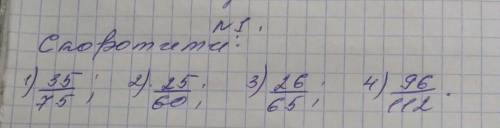 №1.
Скоротити:
1) 35/75; 2) 25/60; 3) 26/65; 4) 96/112.